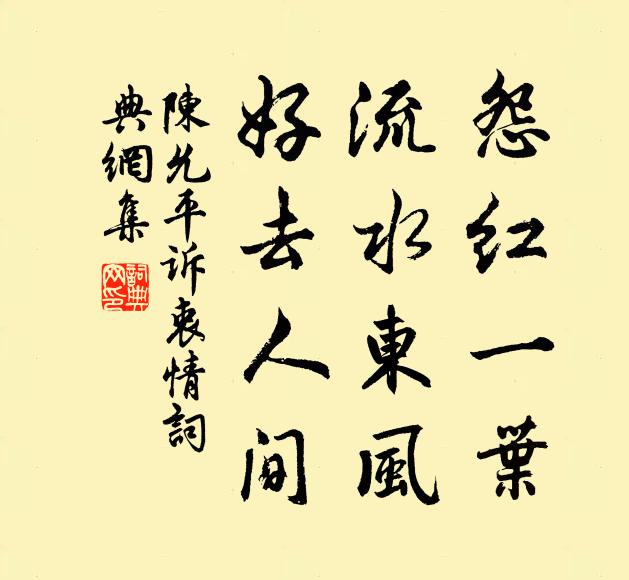 怨红一葉
流水東風
好去人间
陳允平诉衷情詞
典網集
詞典网印